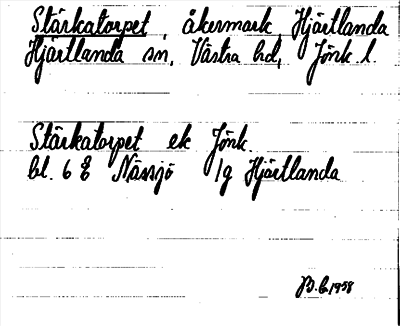 Stärkatorpet, åkermark, Hjärtlanda
Hjärtlanda sn, Västra hd, Jönk. l.
Stärkatorpet ek Jönk.
bl. 6 E Nässjö 1g Hjärtlanda
1958